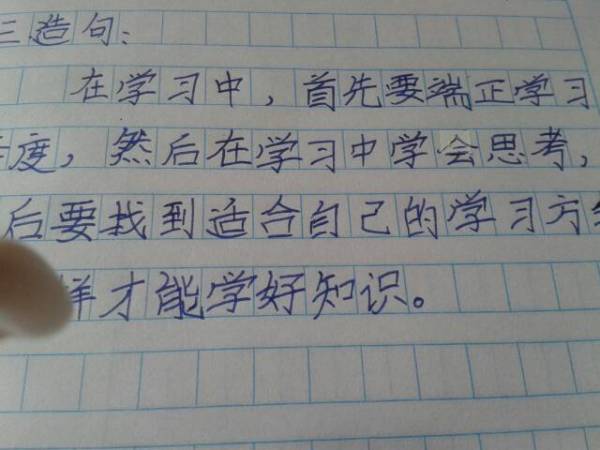 三造句：
在学习中，首先要端正学习
度，然后在学习中学会思考，
后要找到适合自己的学习方
样才能学好知识。